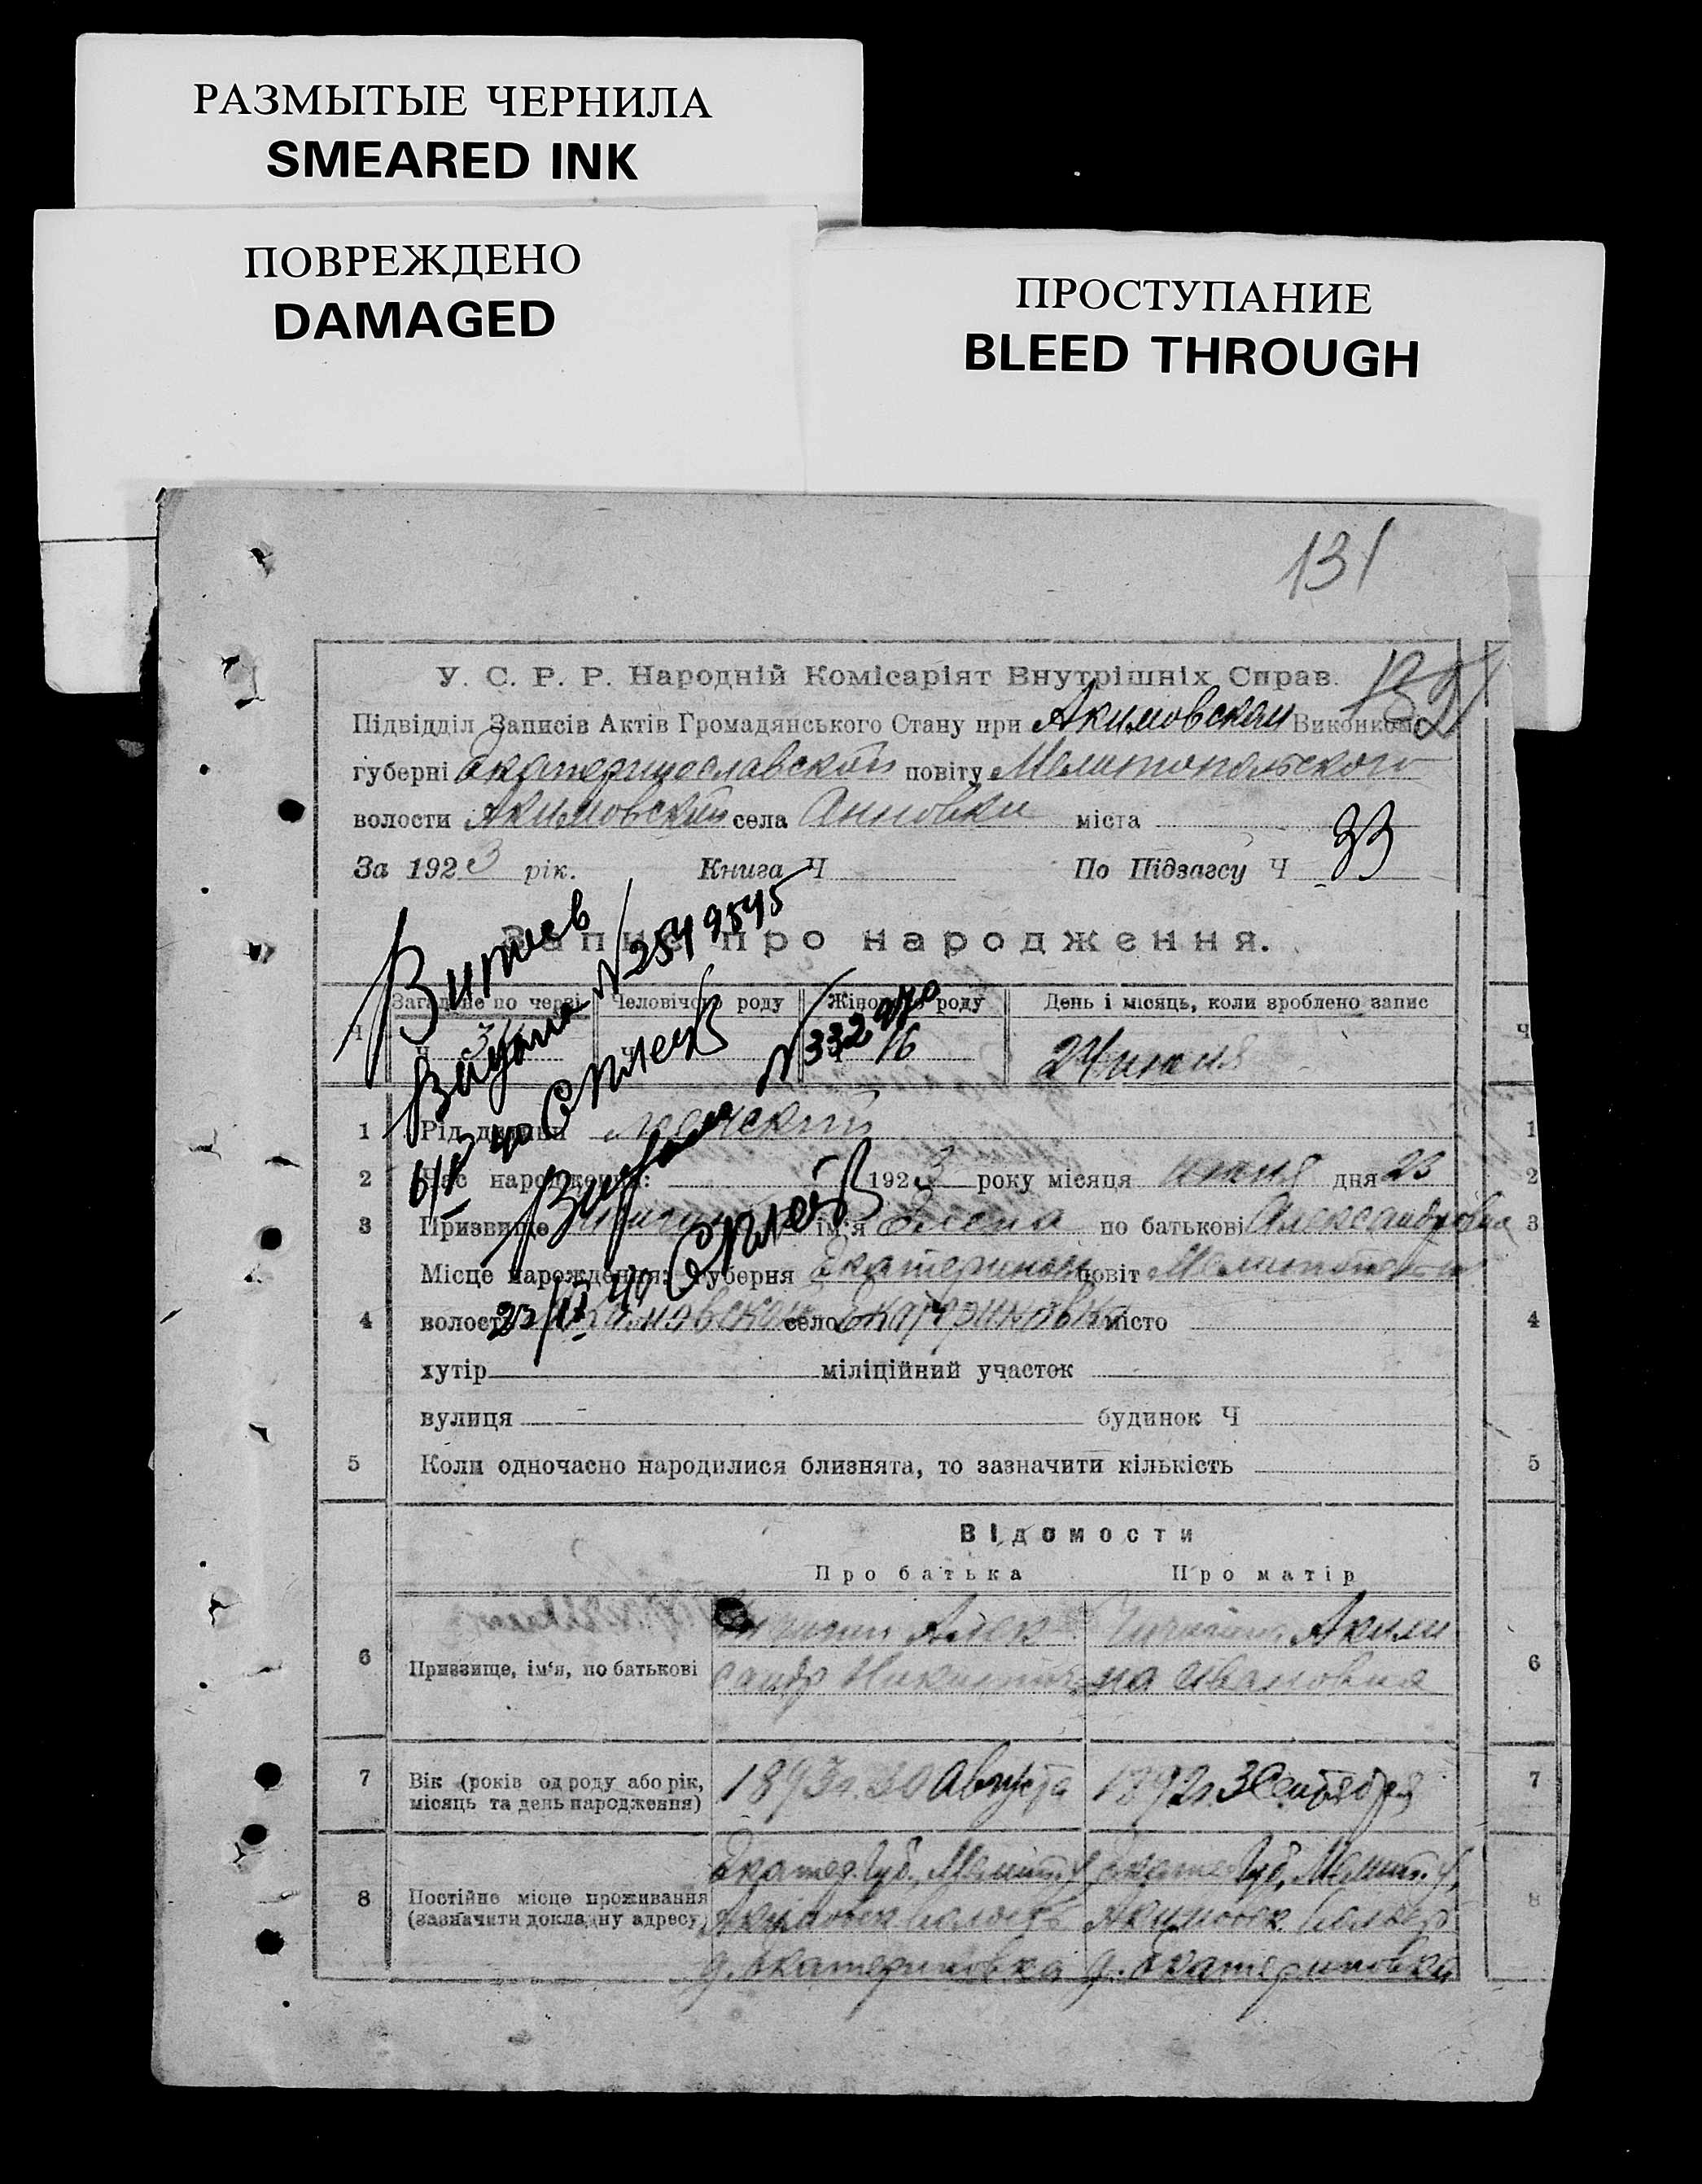 РАЗМЫТЫЕ ЧЕРНИЛА
SMEARED INK
ПОВРЕЖДЕНО
DAMAGED
ПРОСТУПАНИЕ
BLEED THROUGH
131
У. С. Р. Р. Народній Комісаріят Внутрішніх Справ.
Підвідділ Записів Актів Громадянського Стану при Акимовском Виконкомі
губерні Екатеринославской повіту Мелитопольского
волости Акимовской села Анновки міста
За 1923 рік. Книга Ч По Підзагсу Ч 33
Запис про народження.
Загальне по черзі Человічого роду Жіночого роду День і місяць, коли зроблено запис
Ч Ч 16 24 июня Ч
Витяев
Выдана №2549545
Выдана №332970
1 Рід дитини женский 1
2 Час народження: 1923 року місяця июня дня 23 2
3 Призвище ім'я Елена по батькові Александровна 3
Місце народження: губерня Екатеринос повіт Мелитопол
4 волость Акимовской село Екатериновка місто 4
хутір міліційний участок
вулиця будинок Ч
5 Коли одночасно народилися близнята, то зазначити кількість 5
Відомости
Про батька Про матір
6 Призвище, ім'я, по батькові Алек Акили 6
сандр Никитич на Ивановна
7 Вік (років од роду або рік, місяць та день народження) 1893 г. 30 Августа 1892 г. 3 Сентября 7
Екатер. Губ., Мелит. у. Екатер. Губ., Мелит. у.
8 Постійне місце проживання (зазначити докладну адресу) Акимовск волость Акимовск. волость 8
д. Екатериновка д. Екатериновка